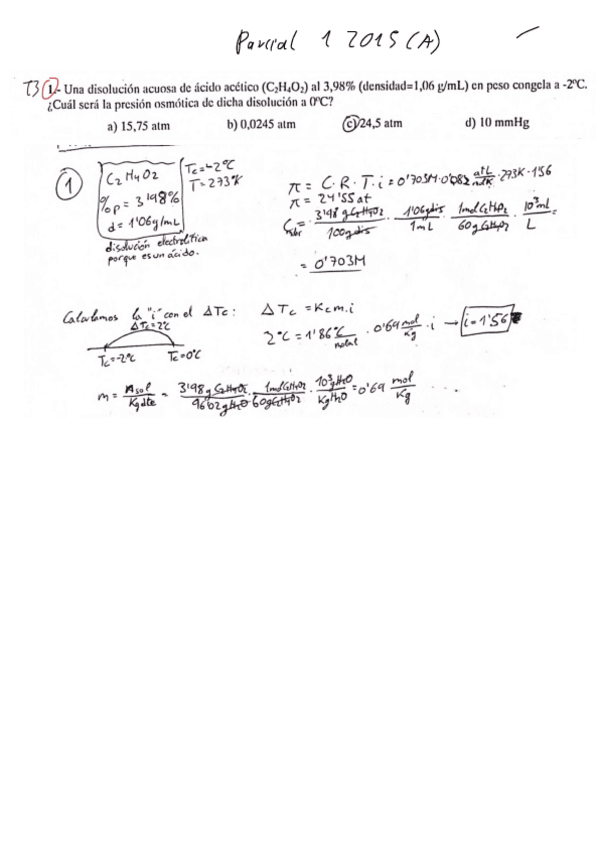 Parcial 1 2015 (A)
T3 1.- Una disolución acuosa de ácido acético (C₂H₄O₂) al 3,98% (densidad=1,06 g/mL) en peso congela a -2ºC.
¿Cuál será la presión osmótica de dicha disolución a 0ºC?
a) 15,75 atm b) 0,0245 atm c) 24,5 atm d) 10 mmHg
1
C₂H₄O₂
%p = 3'98%
d = 1'06g/mL
Tc=-2ºC
T=273ºK
disolución electrolítica
porque es un ácido.
π = C·R·T·i = 0'703M·0'082 atL/molK·273K·1'56
π = 24'55 at
3'98 g C₂H₄O₂/100g dis · 1'06g dis/1mL · 1mol C₂H₄O₂/60g C₂H₄O₂ · 10³mL/L =
= 0'703M
Calculamos la "i" con el ΔTc: ΔTc = Kc·m·i
ΔTc=2ºC
Tc=-2ºC Tc=0ºC
2ºC = 1'86 ºC/molal · 0'69 mol/Kg · i → i=1'56
m = nsol/Kg dte = 3'98g C₂H₄O₂/96'02g H₂O · 1mol C₂H₄O₂/60g C₂H₄O₂ · 10³g H₂O/Kg H₂O = 0'69 mol/Kg . . .